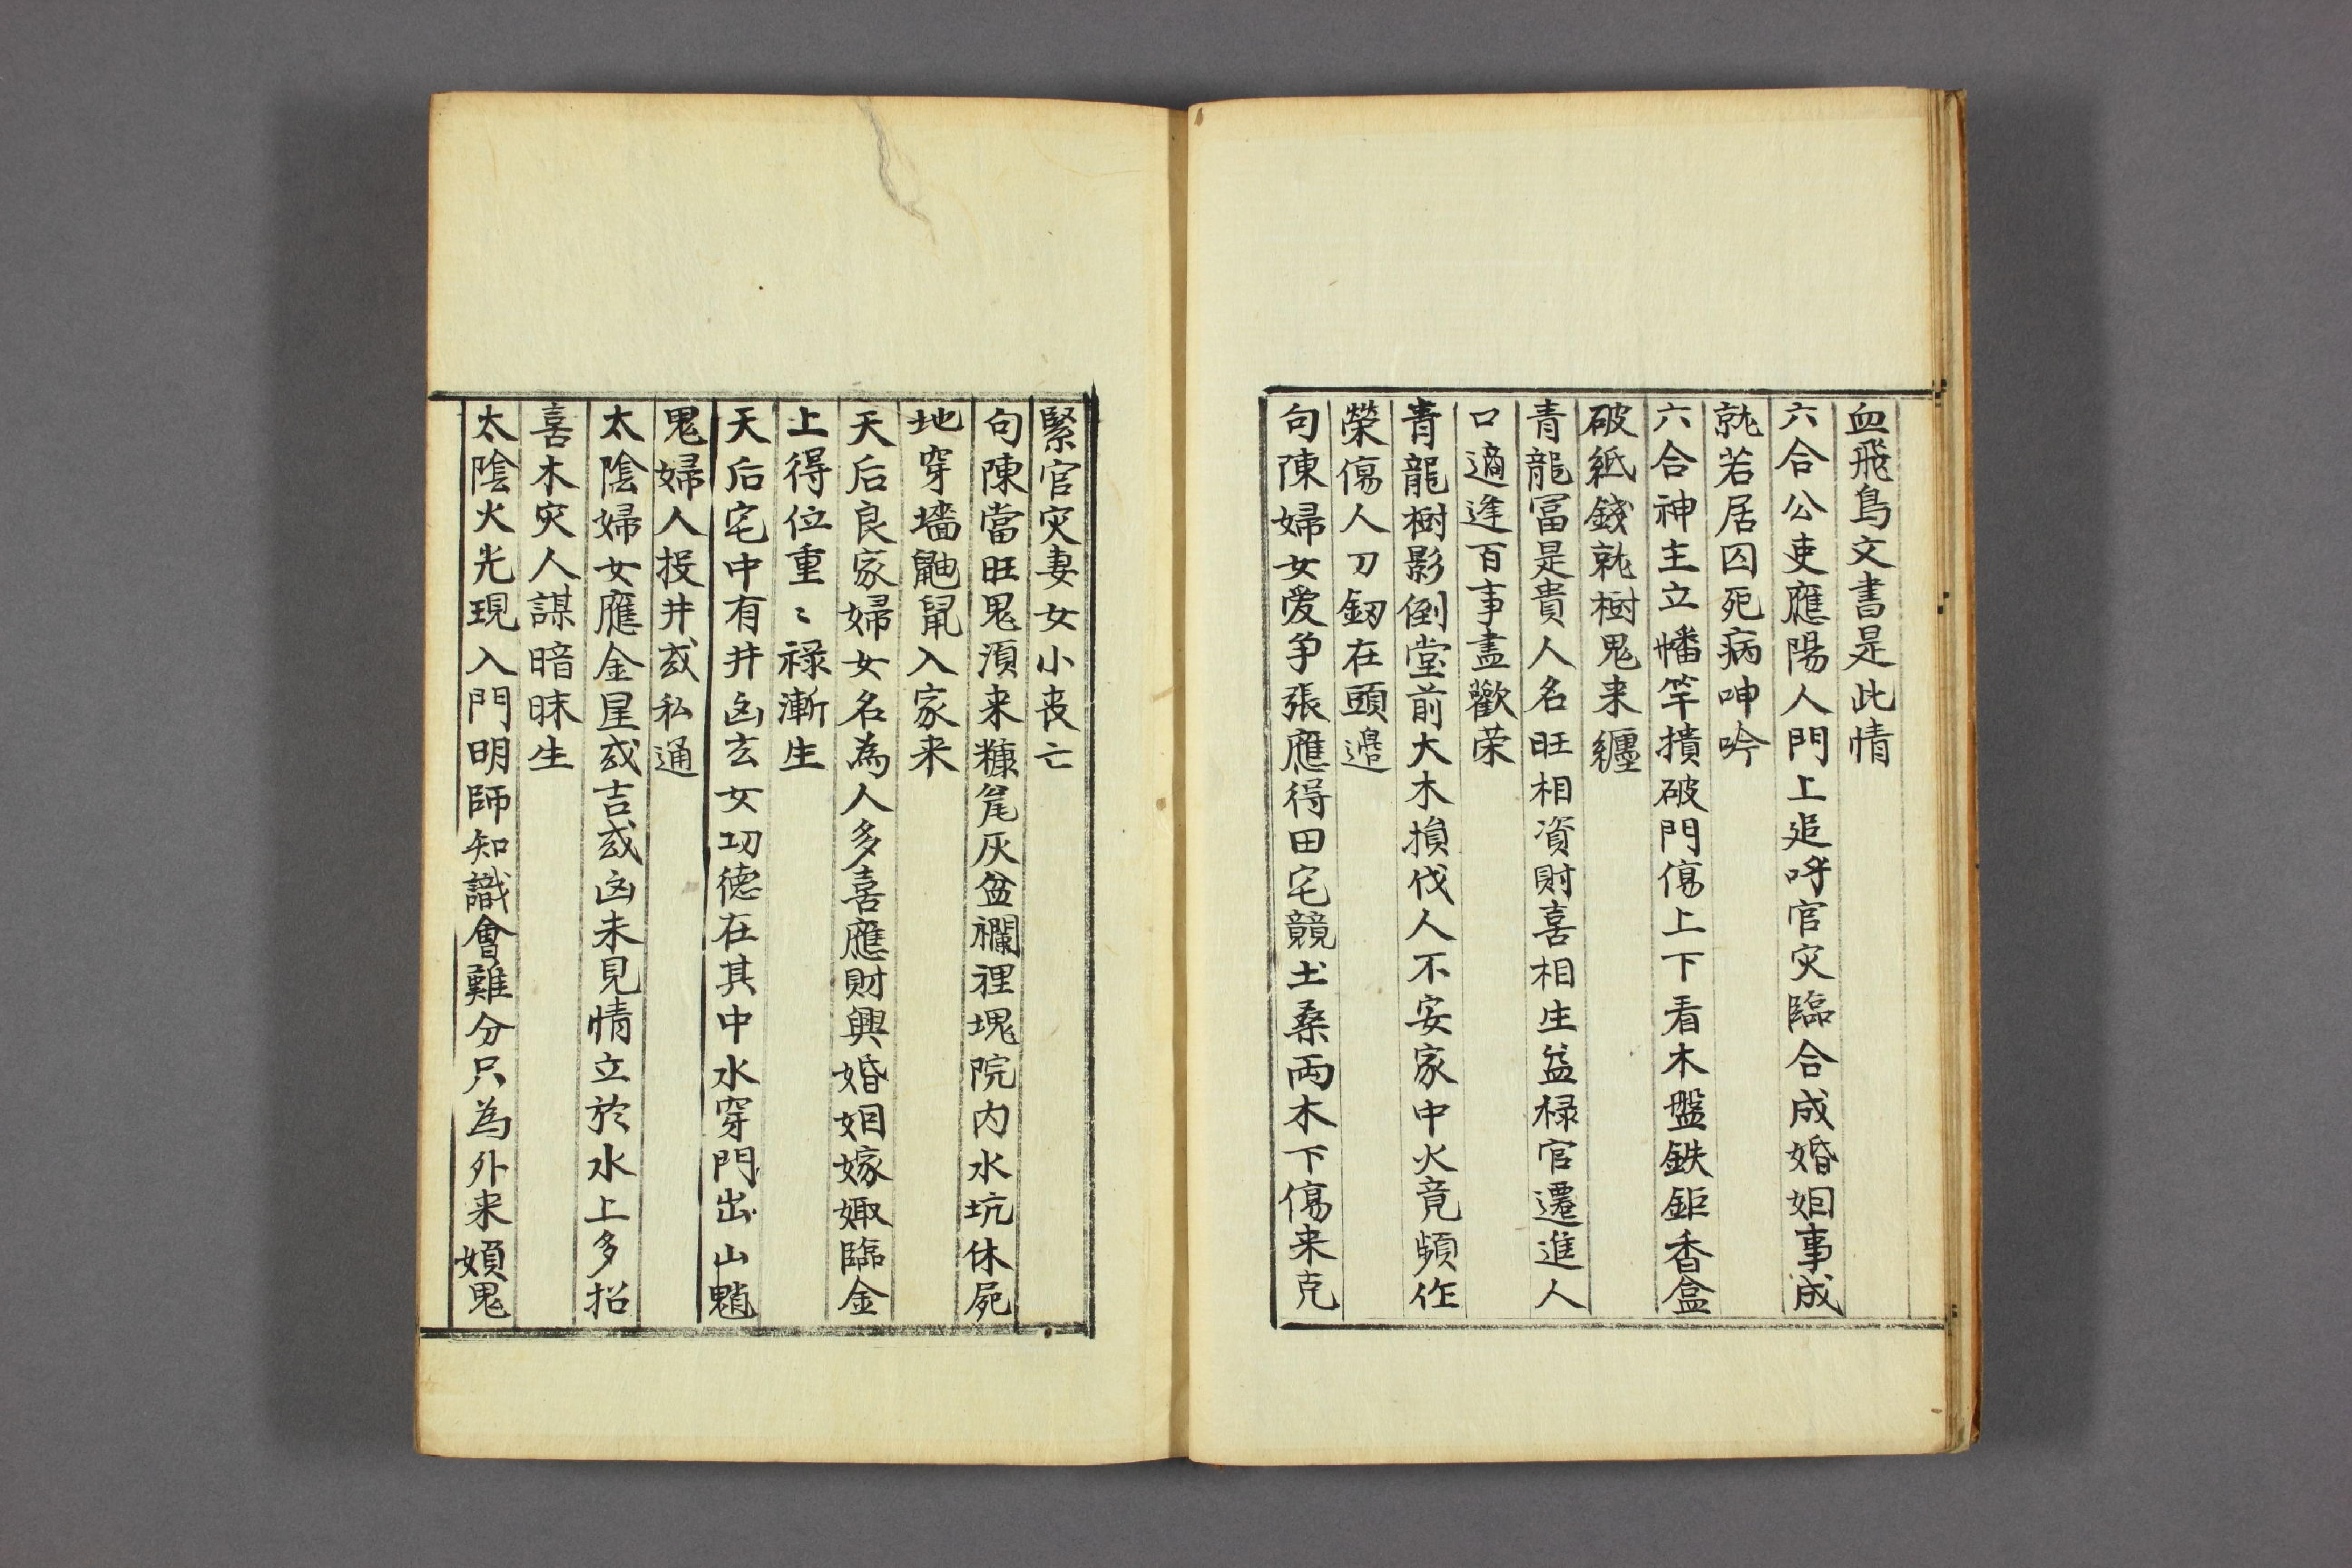 血飛鳥文書是此情
六合公吏應陽人門上追呼官灾臨合成婚姻事成
就若居囚死病呻吟
六合神主立幡竿攢破門傷上下看木盤鉄鉅香盒
破紙錢就樹鬼来纏
青龍冨是貴人名旺相資財喜相生益禄官遷進人
口適逢百事盡歡荣
青龍樹影倒堂前大木損伐人不安家中火竟頻作
榮傷人刀釰在頭邉
句陳婦女愛争張應得田宅競土桑両木下傷来克
緊官灾妻女小丧亡
句陳當旺鬼湏来糠尾灰盆襴裡塊院内水坑休屍
地穿墻鼬鼠入家来
天后良家婦女名為人多喜應財興婚姻嫁娵臨金
上得位重〻禄漸生
天后宅中有井凶玄女功德在其中水穿門出山魈
鬼婦人投井或私通
太陰婦女應金星或吉或凶未見情立於水上多招
喜木灾人謀暗昧生
太陰火光現入門明師知識會難分只為外来鬼